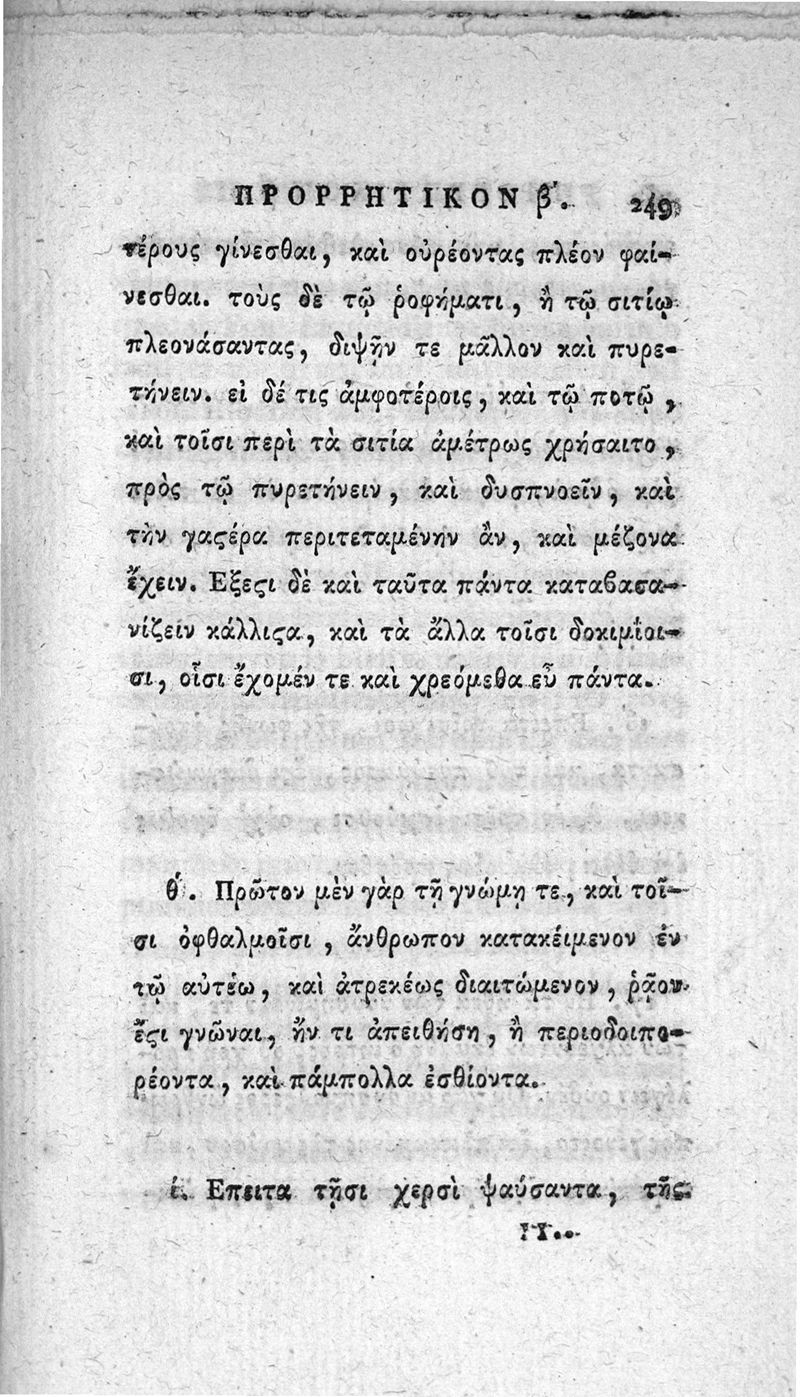 ΠΡΟΡΡΗΤΙΚΟΝ β'. 249
τέρους γίνεσθαι, καὶ οὐρέοντας πλέον φαί-
νεσθαι. τοὺς δὲ τῷ ῥοφήματι, ἢ τῷ σιτίῳ
πλεονάσαντας, διψῇν τε μᾶλλον καὶ πυρε-
τήνειν. εἰ δέ τις ἀμφοτέροις, καὶ τῷ ποτῷ,
καὶ τοῖσι περὶ τὰ σιτία ἀμέτρως χρήσαιτο,
πρὸς τῷ πυρετήνειν, καὶ δυσπνοεῖν, καὶ
τὴν γαϛέρα περιτεταμένην ἂν, καὶ μέζονα
ἔχειν. Εξεϛι δὲ καὶ ταῦτα πάντα καταβασα-
νίζειν κάλλιϛα, καὶ τὰ ἄλλα τοῖσι δοκιμίοι-
σι, οἷσι ἔχομέν τε καὶ χρεόμεθα εὖ πάντα.
θ'. Πρῶτον μὲν γὰρ τῇ γνώμῃ τε, καὶ τοῖ-
σι ὀφθαλμοῖσι, ἄνθρωπον κατακείμενον ἐν
τῷ αὐτέω, καὶ ἀτρεκέως διαιτώμενον, ῥᾷον
ἔϛι γνῶναι, ἤν τι ἀπειθήσῃ, ἢ περιοδοιπο-
ρέοντα, καὶ πάμπολλα ἐσθίοντα.
ί. Επειτα τῇσι χερσὶ ψαύσαντα, τῆς